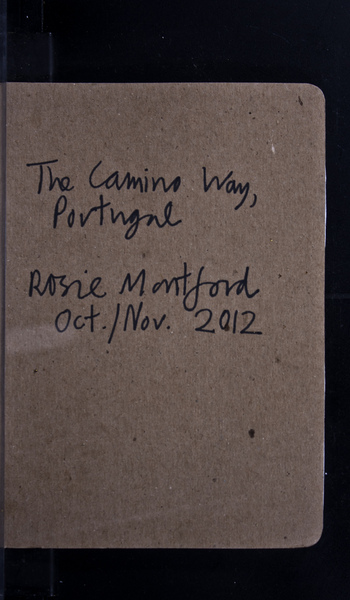 The Camino Way,
Portugal
Rosie Montford
Oct./Nov. 2012